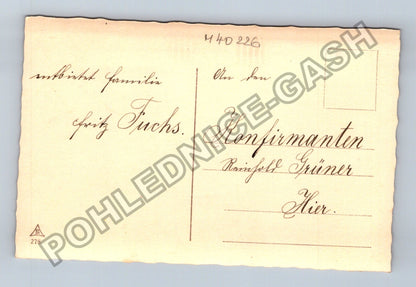 M4D226
entbietet Familie
Fritz Fuchs.
An den
Konfirmanten
Reinhold Grüner
Hier.
POHLEDNICE-GASH